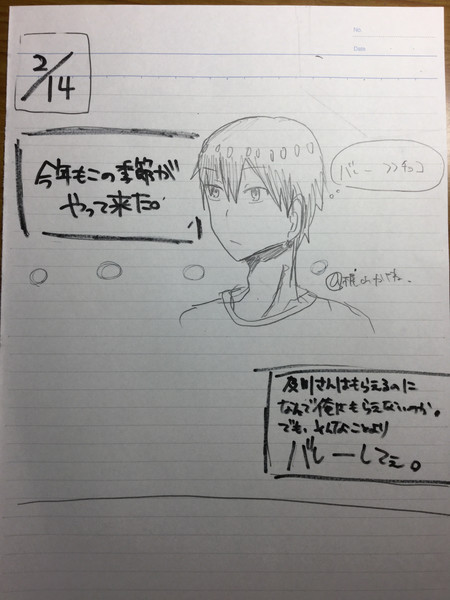 No.
Date
2/14
今年もこの季節が
やって来た。
バレー >> チョコ
及川さんはもらえるのに
なんで俺はもらえないのか。
でも、そんなことより
バレーしてぇ。